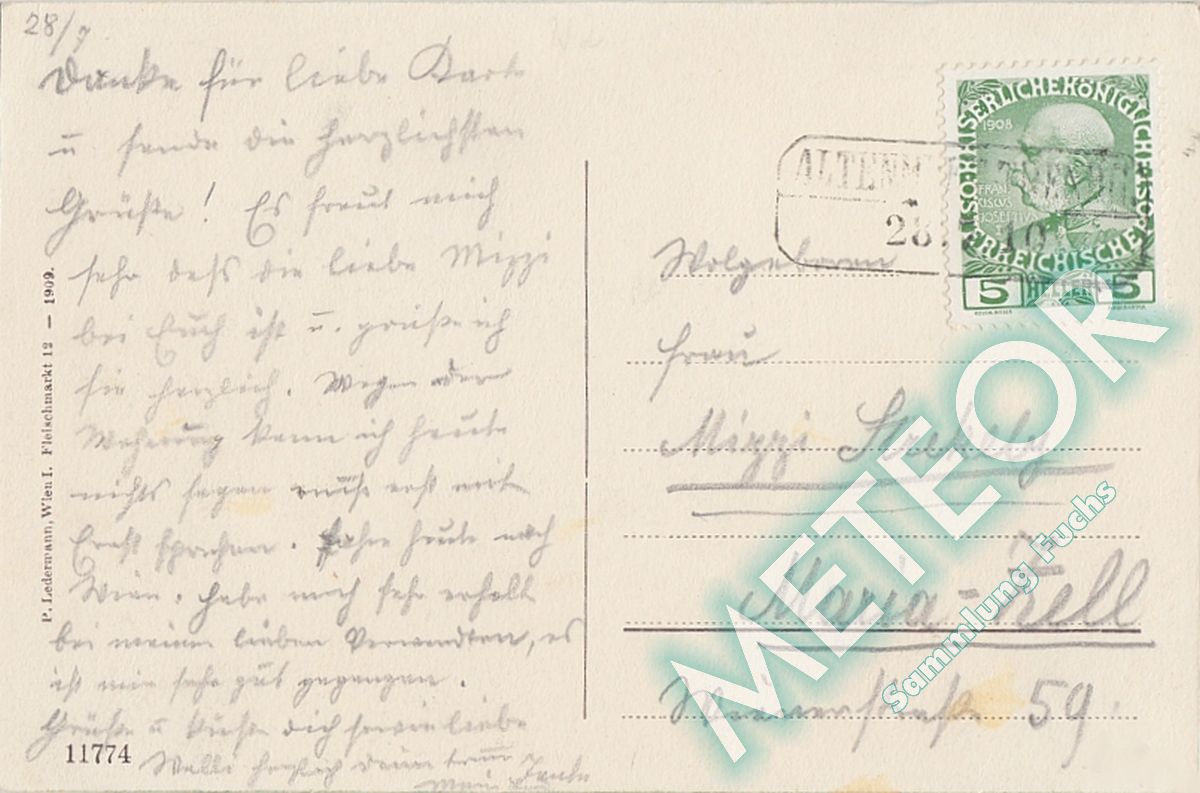 28/7
Danke für liebe Karte
u. sende die herzlichsten
Grüße! Es freut mich
sehr daß die liebe Mizzi
bei Euch ist u. grüße ich
sie herzlich. Wegen der
Wohnung kann ich heute
nichts sagen muß erst mit
Ernst sprechen. Fahre heute nach
Wien. habe mich sehr erholt
bei meinen lieben Verwandten, es
ist mir sehr gut gegangen.
Grüße u küße dich sowie liebe
Walli herzlich deine Tante
11774
P. Ledermann, Wien I. Fleischmarkt 12 — 1909.
KAISERLICHE KÖNIGLICHE ÖSTERREICHISCHE POST
1908
FRANCISCUS JOSEPHUS
5 HELLER 5
ALTENM
28. 10
Wolgeboren
Frau
Mizzi Szekely
in
Maria-Zell
Wienerstraße 59.
METEOR
Sammlung Fuchs